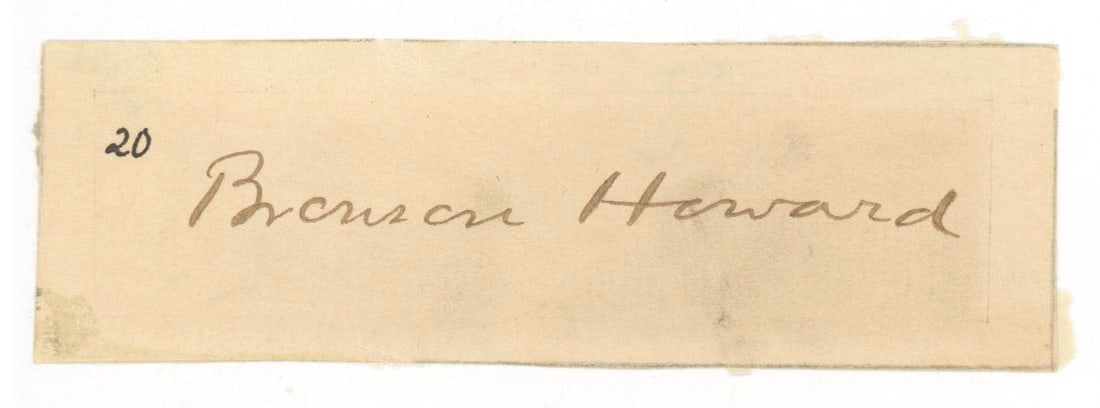 20
Bronson Howard